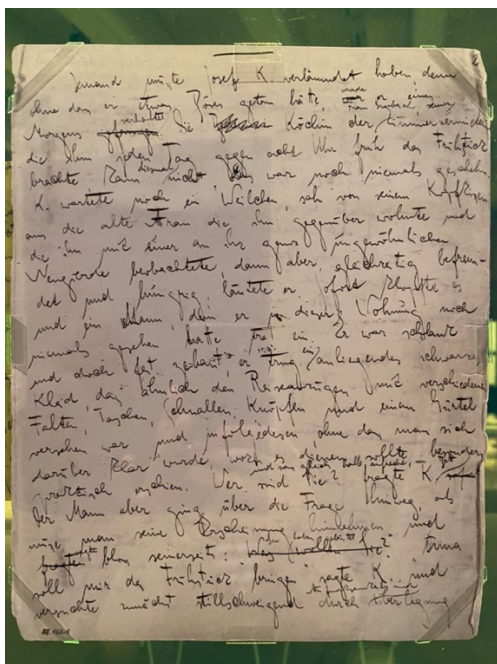 Jemand mußte Josef K. verläumdet haben, denn
ohne daß er etwas Böses getan hätte, wurde er eines
Morgens verhaftet. Die Köchin der Zimmervermieterin
die ihm jeden Tag gegen acht Uhr früh das Frühstück
brachte kam diesmal nicht. Das war noch niemals geschehn.
K. wartete noch ein Weilchen, sah von seinem Kopfkissen
aus die alte Frau die ihm gegenüber wohnte und
die ihn mit einer an ihr ganz ungewöhnlichen
Neugierde beobachtete, dann aber, gleichzeitig befrem-
det und hungrig, läutete er. Sofort klopfte es
und ein Mann, den er in dieser Wohnung noch
niemals gesehen hatte trat ein. Er war schlank
und doch fest gebaut, er trug ein anliegendes schwarzes
Kleid, das ähnlich den Reiseanzügen mit verschiedenen
Falten, Taschen, Schnallen, Knöpfen und einem Gürtel
versehen war und infolgedessen, ohne daß man sich
darüber klar wurde, wozu es dienen sollte, besonders
praktisch erschien. "Wer sind Sie?" fragte K. und saß gleich halb aufrecht im Bett
Der Mann aber ging über die Frage hinweg, als
müsse man seine Erscheinung hinnehmen und
sagte bloß seinerseits: "Sie haben geläutet?" "Anna
soll mir das Frühstück bringen" sagte K. und
versuchte zunächst stillschweigend durch Aufmerksamkeit und Überlegung